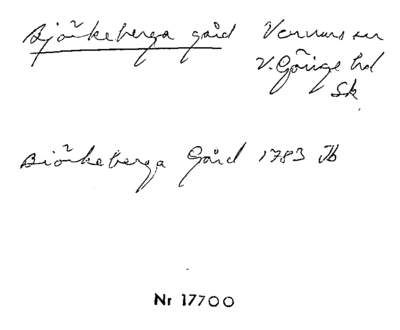 Björkeberga gård Vermuns sn
V. Göinge hd
Sk
Biörkeberga Gård 1783 Jb
Nr 17700